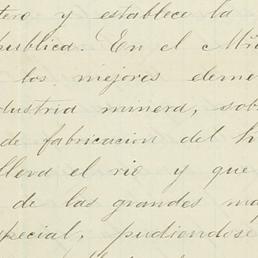 tero y establece la
pública. En el Mi
los mejores deme
dustria minera, sob
de fabricacion del h
lleva el rio y que
de las grandes ma
special, pudiendose